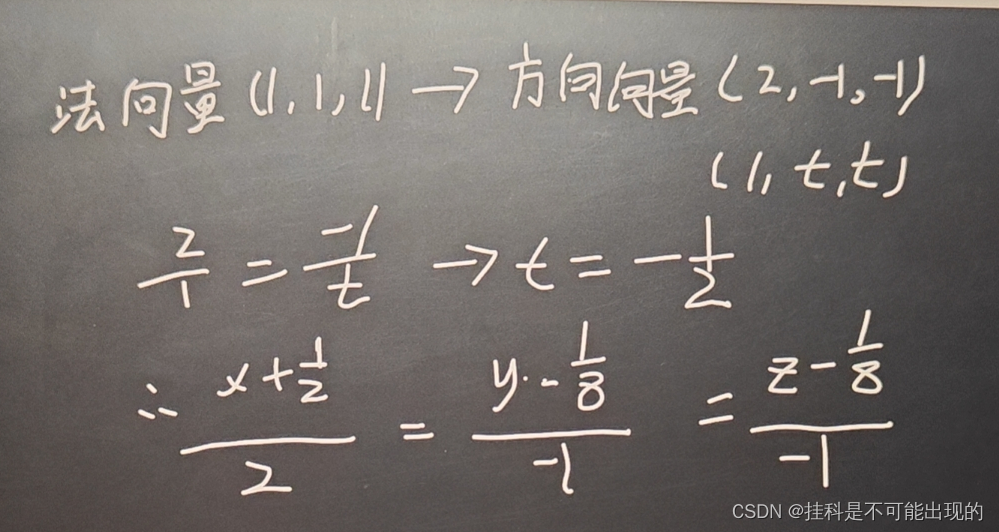 法向量(1,1,1) → 方向向量(2,-1,-1)
(1,t,t)
2/1 = -1/t → t = -1/2
∴ (x+1/2)/2 = (y-1/8)/-1 = (z-1/8)/-1
CSDN @挂科是不可能出现的